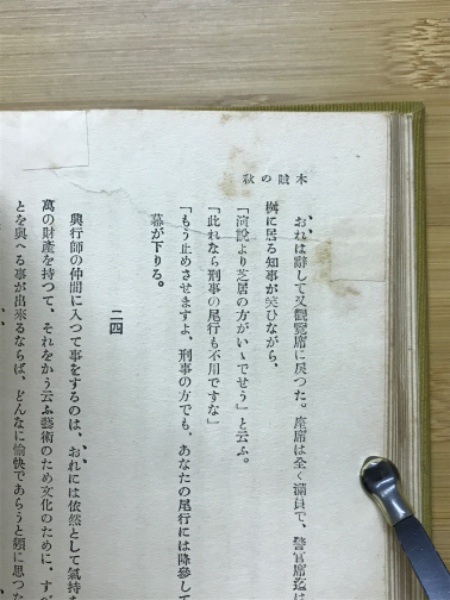 木賊の秋
おれは辭して又觀覽席に戻つた。座席は全く滿員で、警官席迄は
桝に居る知事が笑ひながら、
「演說より芝居の方がいゝでせう」と云ふ。
「此れなら刑事の尾行も不用ですな」
「もう止めさせますよ、刑事の方でも、あなたの尾行には降參して
幕が下りる。
二四
興行師の仲間に入つて事をするのは、おれには依然として氣持
萬の財產を持つて、それをかう云ふ藝術のため文化のために、す
とを與へる事が出來るならば、どんなに愉快であらうと頻に思つた